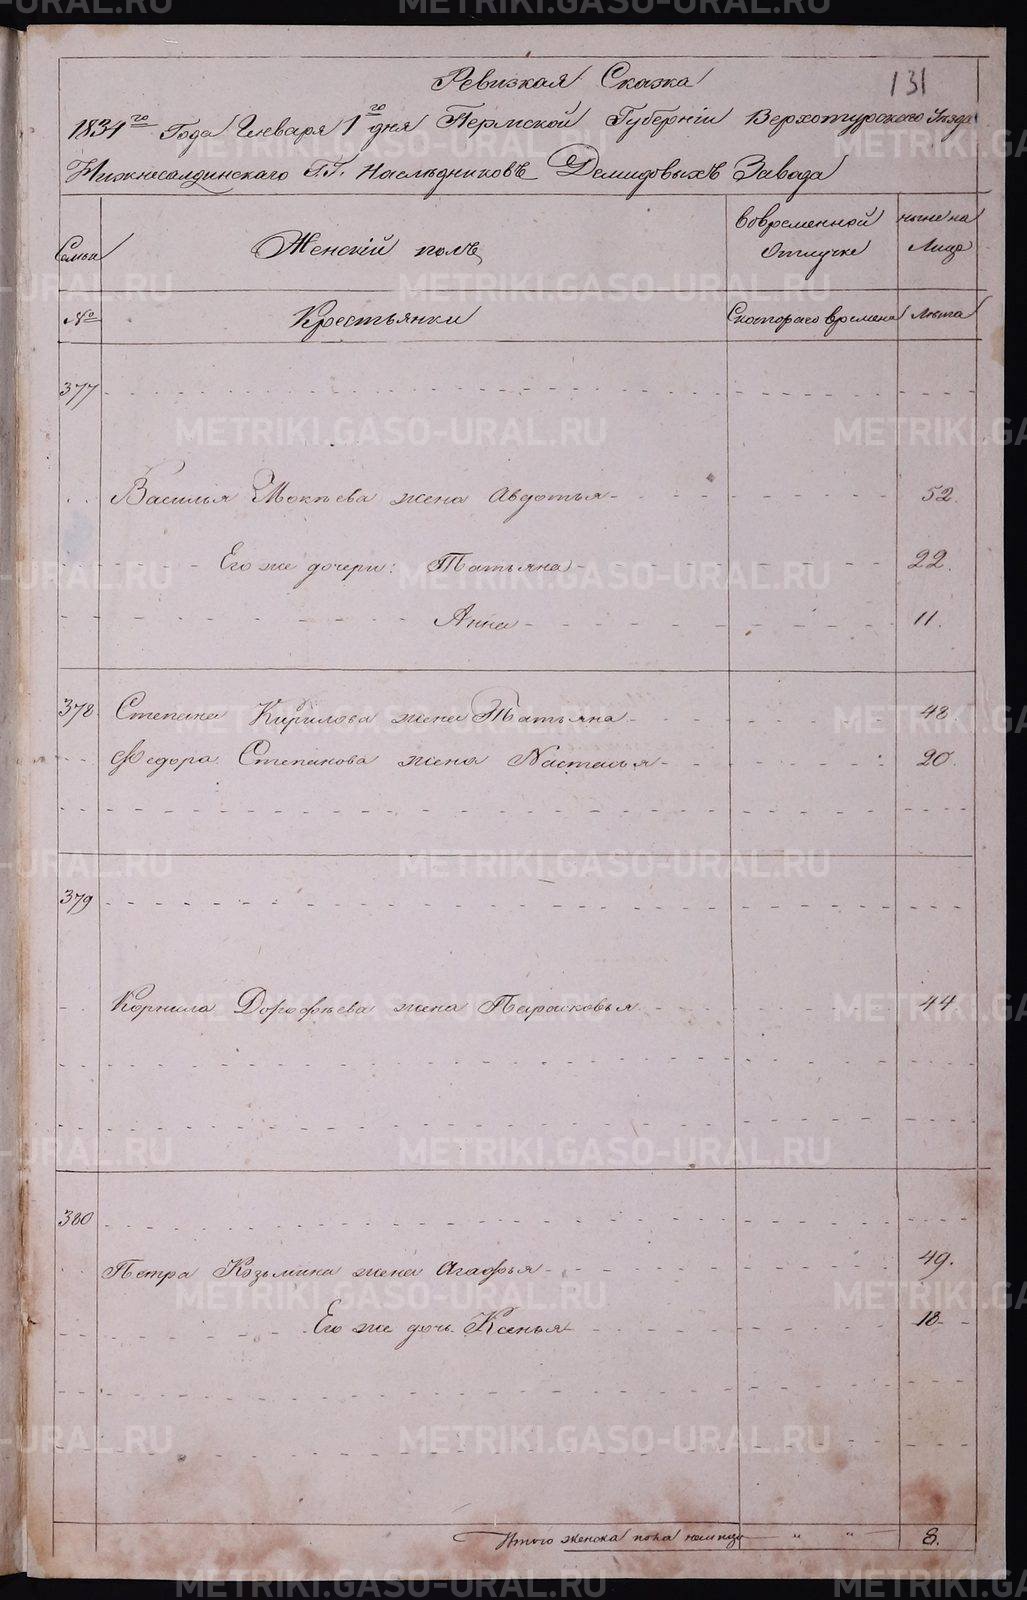 131
Ревизкая Сказка
1834го Года Генваря 1го дня Пермской Губерніи Верхотурского Уезда
Нижнесалдинскаго Г.Г. Наследниковъ Демидовыхъ Завода
Семьи Женскій полъ Вовременной Отлучке ныне на Лицо
№ Крестьянки Скотораго времена Лета
377
Василья Мокеева жена Авдотья 52.
Его же дочери: Татьяна 22.
Анна 11.
378 Степана Кирилова жена Татьяна 48.
Федора Степанова жена Настасья 20.
379
Корнила Дорофеева жена Парасковья 44
380
Петра Козьмина жена Агафья 49.
Его же дочь Ксенья 18
Итого женска пола налицо „ „ 8.
METRIKI.GASO-URAL.RU